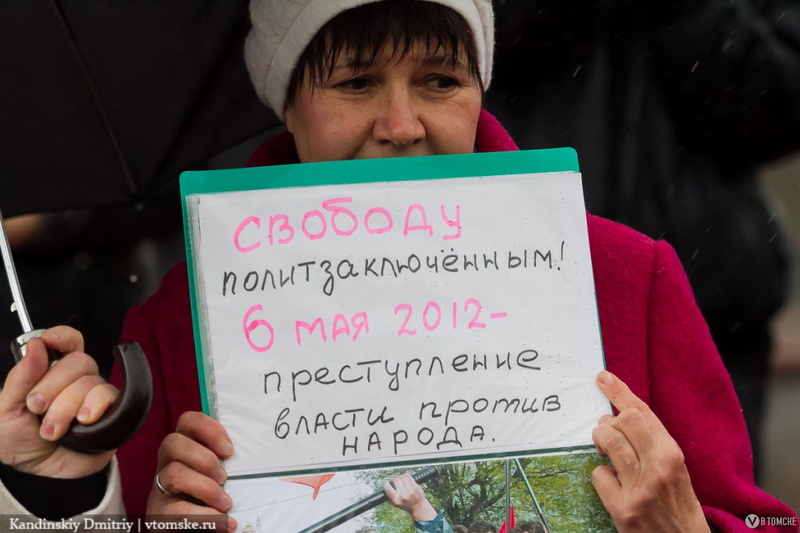 свободу
политзаключённым!
6 мая 2012-
преступление
власти против
народа.
Kandinskiy Dmitriy | vtomske.ru
В ТОМСКЕ